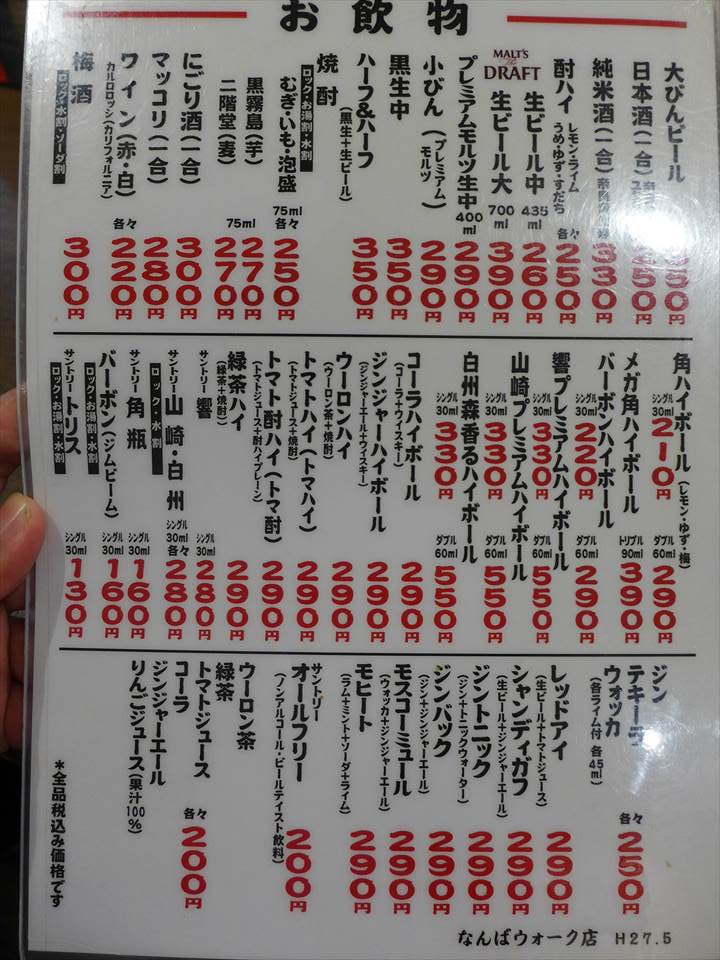 お飲物
大びんビール 350円
日本酒(一合) 250円
純米酒(一合) 330円
酎ハイ レモン・ライム うめ・ゆず・すだち 各々 250円
MALT'S The DRAFT
生ビール中 435ml 260円
生ビール大 700ml 390円
プレミアムモルツ生中 400ml 290円
小びん(プレミアムモルツ) 290円
黒生中 350円
ハーフ&ハーフ(黒生+生ビール) 350円
焼酎 ロック・お湯割・水割
むぎ・いも・泡盛 75ml 各々 250円
黒霧島(芋) 270円
二階堂(麦) 75ml 270円
にごり酒(一合) 300円
マッコリ(一合) 280円
ワイン(赤・白) カルロロッシ(カリフォルニア) 各々 220円
梅酒 ロック・水割・ソーダ割 300円
角ハイボール(レモン・ゆず・梅) シングル30ml 210円 ダブル60ml 290円
メガ角ハイボール トリプル90ml 390円
バーボンハイボール シングル30ml 220円 ダブル60ml 290円
響プレミアムハイボール シングル30ml 330円 ダブル60ml 550円
山崎プレミアムハイボール シングル30ml 330円 ダブル60ml 550円
白州森香るハイボール シングル30ml 330円 ダブル60ml 550円
コーラハイボール(コーラ+ウイスキー) 290円
ジンジャーハイボール(ジンジャーエール+ウィスキー) 290円
ウーロンハイ(ウーロン茶+焼酎) 290円
トマトハイ(トマハイ)(トマトジュース+焼酎) 290円
トマト酎ハイ(トマ酎)(トマトジュース+酎ハイプレーン) 290円
緑茶ハイ(緑茶+焼酎) 290円
サントリー 響 シングル30ml 280円
サントリー 山崎・白州 ロック・水割 シングル30ml 各々 280円
サントリー 角瓶 シングル30ml 160円
バーボン(ジムビーム) ロック・お湯割・水割 シングル30ml 160円
サントリー トリス ロック・お湯割・水割 シングル30ml 130円
ジン
テキーラ
ウォッカ(各ライム付 各45ml) 各々 250円
レッドアイ(生ビール+トマトジュース) 290円
シャンディガフ(生ビール+ジンジャーエール) 290円
ジントニック(ジン+トニックウォーター) 290円
ジンバック(ジン+ジンジャーエール) 290円
モスコーミュール(ウォッカ+ジンジャーエール) 290円
モヒート(ラム+ミント+ソーダ+ライム) 290円
サントリー オールフリー(ノンアルコール・ビールテイスト飲料) 200円
ウーロン茶
緑茶
トマトジュース
コーラ
ジンジャーエール
りんごジュース(果汁100%)
各々 200円
*全品税込み価格です
なんばウォーク店 H27.5